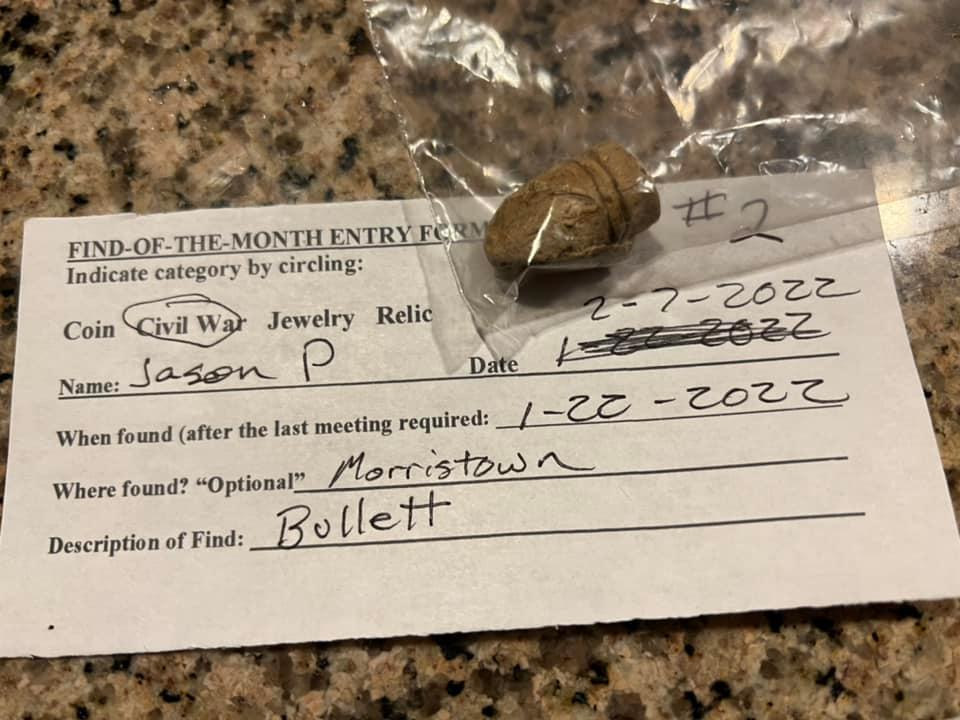 #2
FIND-OF-THE-MONTH ENTRY FORM
Indicate category by circling:
Coin Civil War Jewelry Relic
2-7-2022
Name: Jason P Date 1-22-2022
When found (after the last meeting required: 1-22-2022
Where found? “Optional” Morristown
Description of Find: Bullett